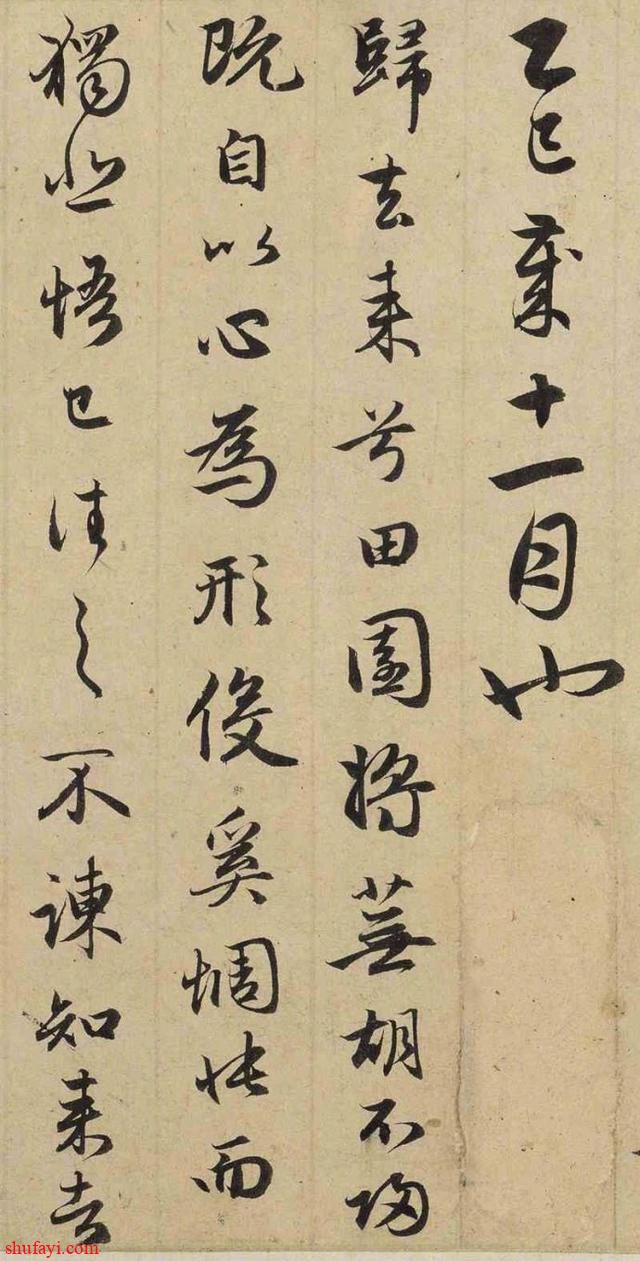 乙巳歲十一月也
歸去来兮田園將蕪胡不歸
既自以心為形役奚惆悵而
獨悲悟已往之不諫知来者
shufayi.com